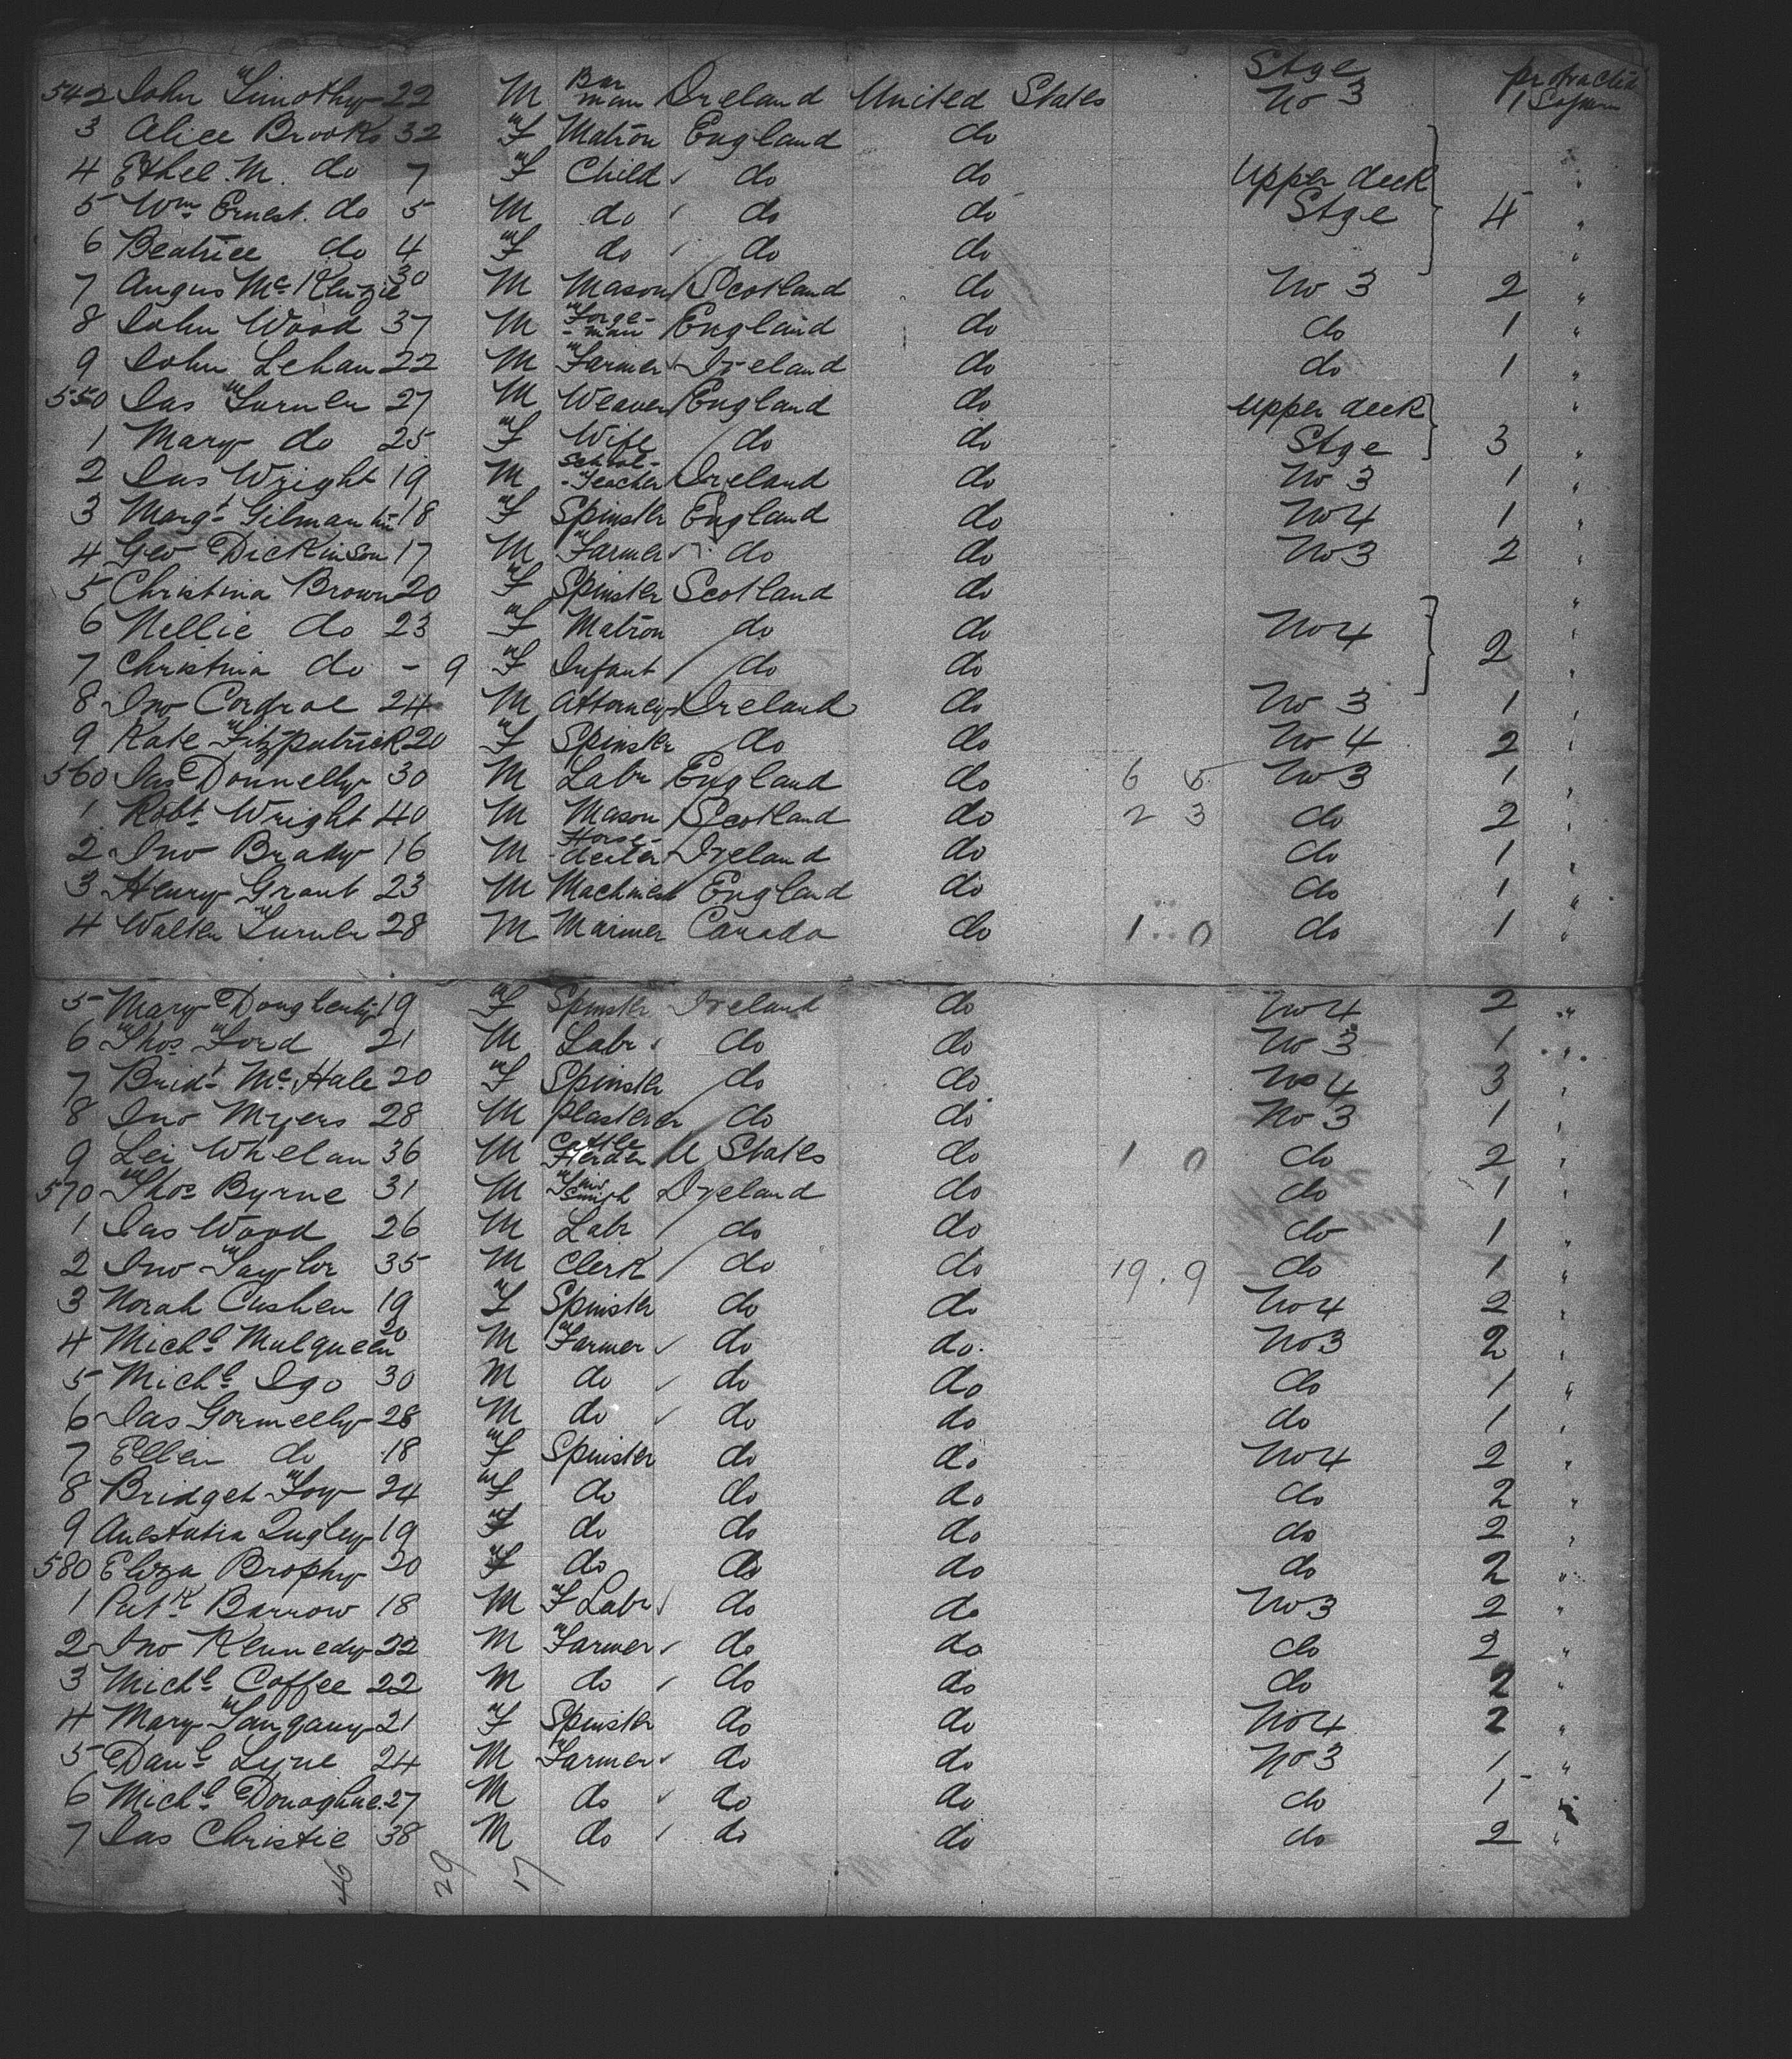 542 John Timothy 22 M Bar man Ireland United States Stge No 3 1 protracted Sojourn
3 Alice Brooks 32 F Matron England do
4 Ethel M. do 7 F Child do do Upper deck "
5 Wm Ernest. do 5 M do do do Stge 4 "
6 Beatrice do 4 F do do do "
7 Angus McKenzie 30 M Mason Scotland do No 3 2 "
8 John Wood 37 M Forge-man England do do 1 "
9 John Lehan 22 M Farmer Ireland do do 1 "
550 Jas Turner 27 M Weaver England do Upper deck "
1 Mary do 25 F Wife do do Stge 3 "
2 Jas Wright 19 M School-Teacher Ireland do No 3 1 "
3 Margt Gilmartin 18 F Spinster England do No 4 1 "
4 Geo Dickinson 17 M Farmer do do No 3 2 "
5 Christina Brown 20 F Spinster Scotland do "
6 Nellie do 23 F Matron do do No 4 "
7 Christina do - 9 F Infant do do 2 "
8 Jno 24 M Attorney Ireland do No 3 1 "
9 Kate Fitzpatrick 20 F Spinster do do No 4 2 "
560 Jas Donnelly 30 M Labr England do 6 5 No 3 1 "
1 Robt Wright 40 M Mason Scotland do 2 3 do 2 "
2 Jno Brady 16 M Horse-dealer Ireland do do 1 "
3 Henry Grant 23 M Machinist England do do 1 "
4 Walter Turner 28 M Mariner Canada do 1 0 do 1 "
5 Mary Dougherty 19 F Spinster Ireland do No 4 2 "
6 Thos Ford 21 M Labr do do No 3 1 "
7 Bridt McHale 20 F Spinster do do No 4 3 "
8 Jno Myers 28 M Plasterer do do No 3 1 "
9 Whelan 36 M Cattle Herder U States do 1 0 do 2 "
570 Thos Byrne 31 M Tin Smith Ireland do do 1 "
1 Jas Wood 26 M Labr do do do 1 "
2 Jno Taylor 35 M Clerk do do 19.9 do 1 "
3 Norah Cushen 19 F Spinster do do No 4 2 "
4 Michl Mulqueen 20 M Farmer do do. No 3 2 "
5 Michl Igo 30 M do do do do 1 "
6 Jas Gormelly 28 M do do do do 1 "
7 Ellen do 18 F Spinster do do No 4 2 "
8 Bridget Foy 24 F do do do do 2 "
9 Anestatia Qugley 19 F do do do do 2 "
580 Eliza Brophy 20 F do do do do 2 "
1 Patk Barrow 18 M F Labr do do No 3 2 "
2 Jno Kennedy 22 M Farmer do do do 2 "
3 Michl Coffee 22 M do do do do 2 "
4 Mary Tangany 21 F Spinster do do No 4 2 "
5 Danl Lyne 24 M Farmer do do No 3 1 "
6 Michl Donoghue 27 M do do do do 1 "
7 Jas Christie 38 M do do do do 2 "
46 29 17